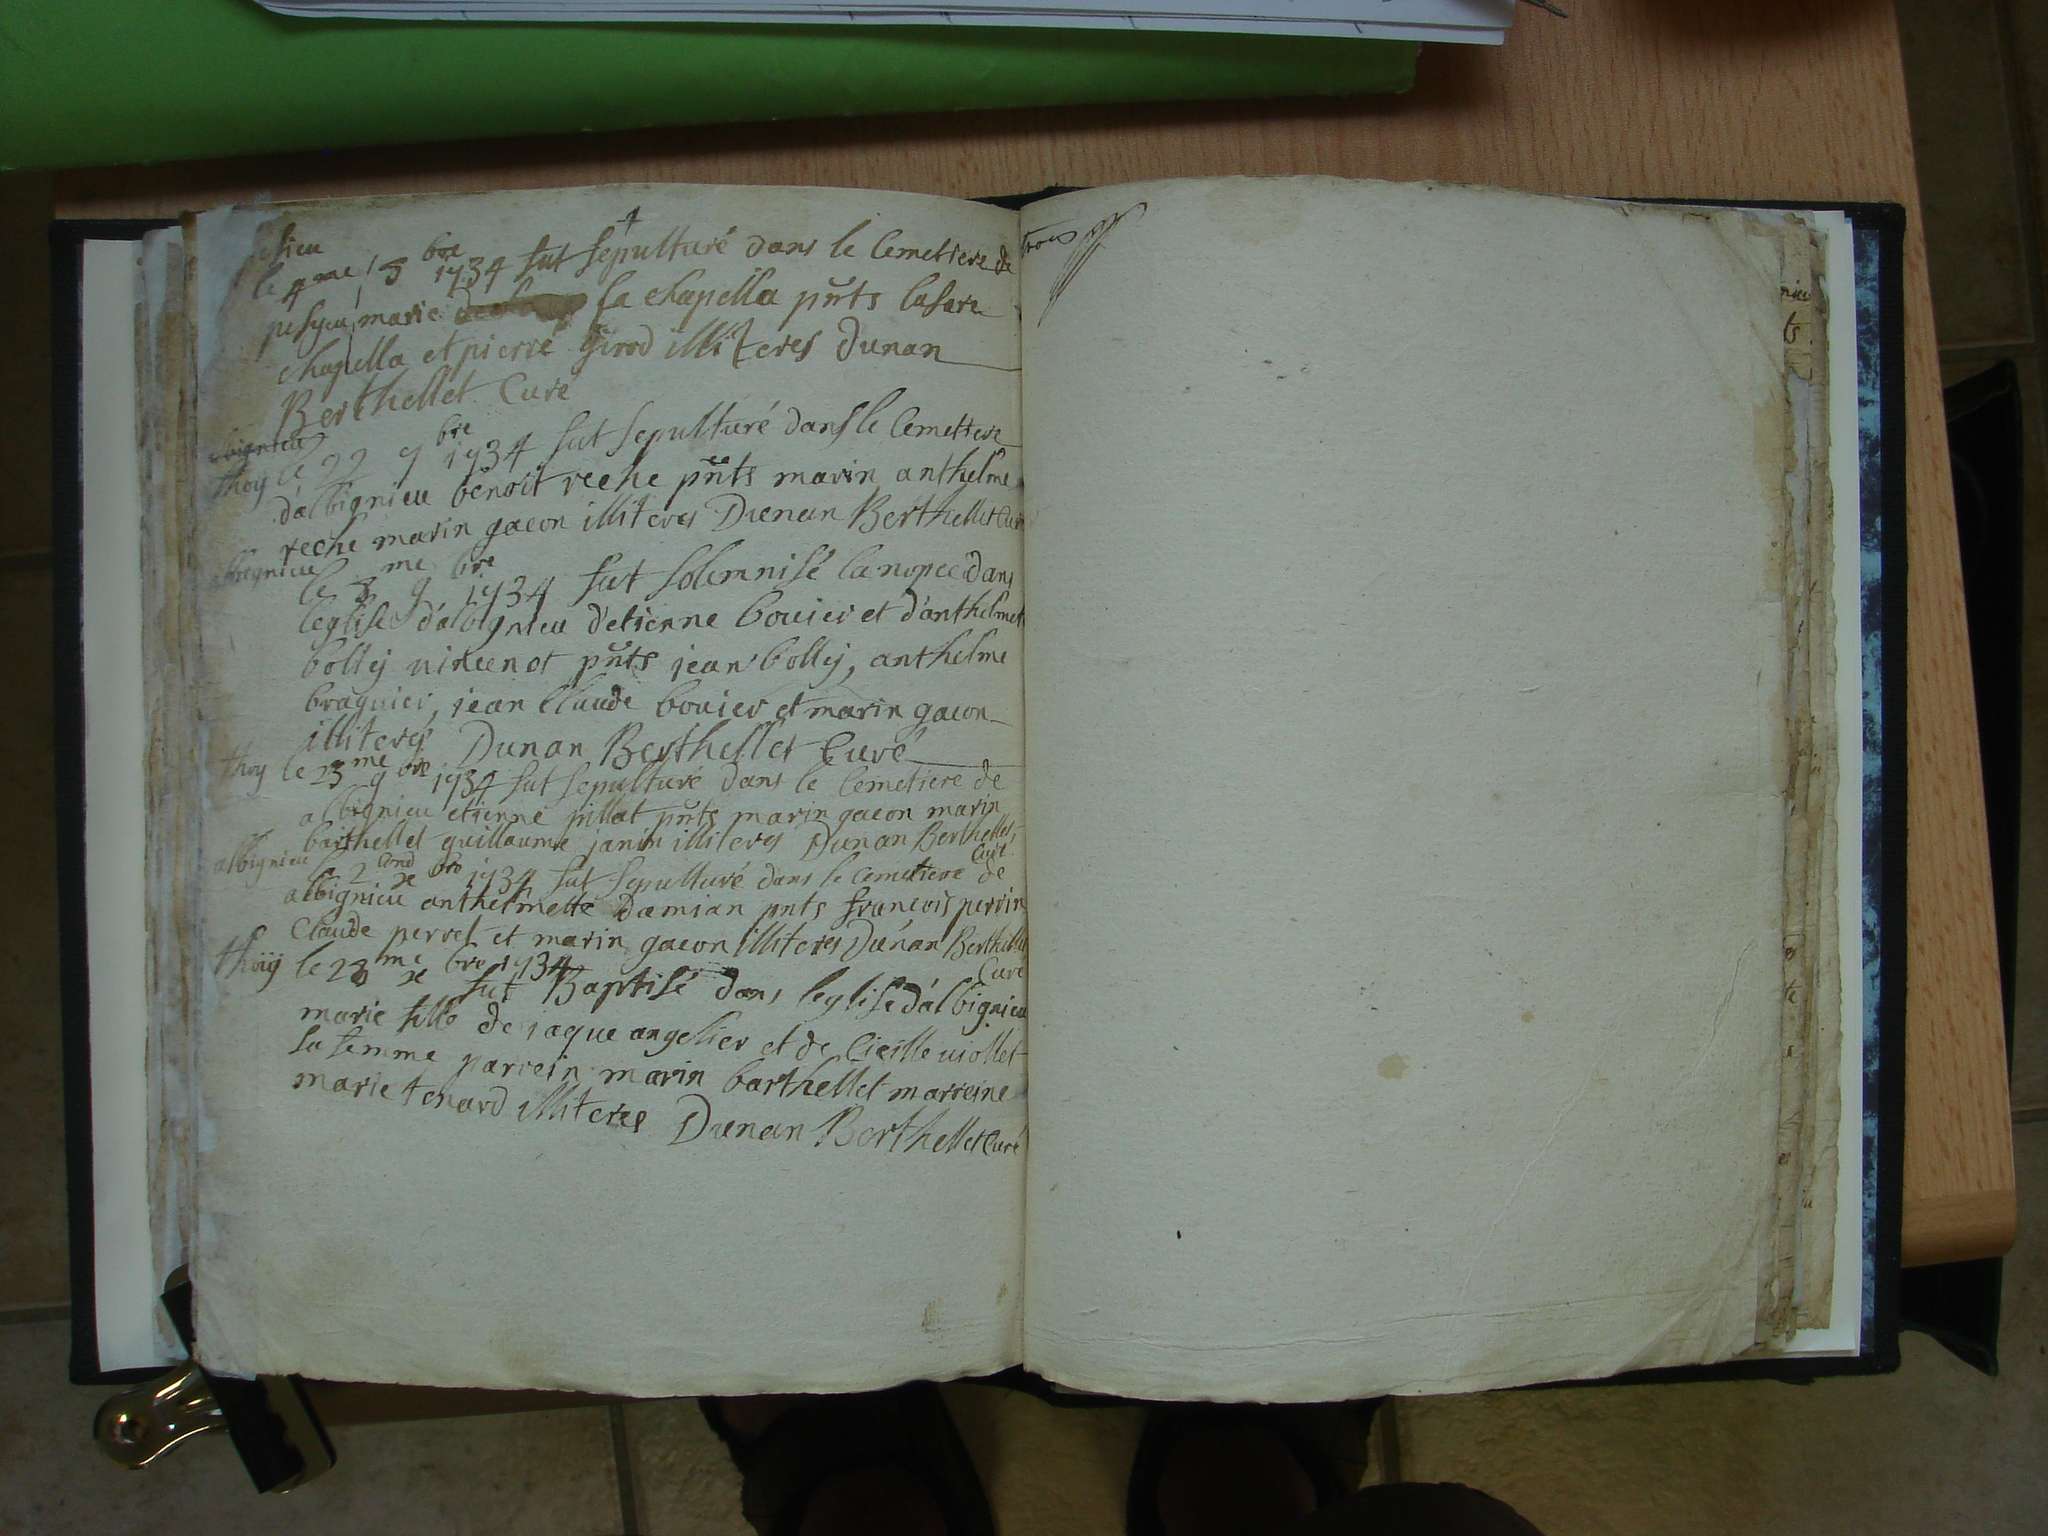 le 4me 1734 fut sepulturé dans le Cemetiere de
pesyeu marie la chapella pnts lasare
chapella et pierre girod illiteres Dunan
Berthellet Curé
thoy le 22 9bre 1734 fut sepulturé dans le Cemetiere
d'albignieu benoit reche pnts marin anthelme
reche marin gacon illiteres Dunan Berthellet Curé
albignieu
le 3me 9bre 1734 fut solemnisé la nopce dans
leglise d'albignieu d'etienne bovier et d'anthelmet
bolly pnts jean bolly, anthelme
braguier, jean Claude bouier et marin gacon
illiteres Dunan Berthellet Curé
thoy le 23me 9bre 1734 fut sepulturé dans le Cemetiere de
albignieu etienne pnts marin gacon marin
barthellet guillaume janin illiteres Dunan Berthellet
Curé
albignieu le 2cond xbre 1734 fut sepulturé dans le Cemetiere de
albignieu anthelmette Damian pnts francois perrin
Claude perret et marin gacon illiteres Dunan Berthellet
Curé
thoiy le 23me xbre 1734
fut Baptisé dans leglise d'albignieu
marie fille de jaque angelier et de Cicille uiollet
sa femme parrein marin barthellet marreine
marie tenard illiteres Dunan Berthellet Curé
trois